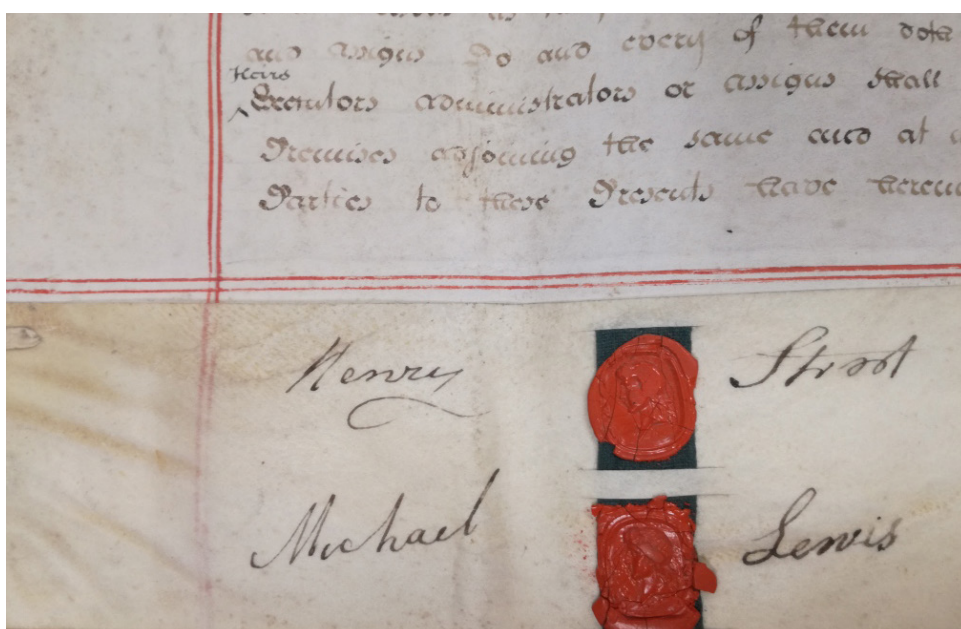 and assigns Do and every of them doth
Heirs
Executors administrators or assigns shall
Premises adjoining the same and at
Parties to these Presents have hereu
Henry Stroot
Michael Lewis